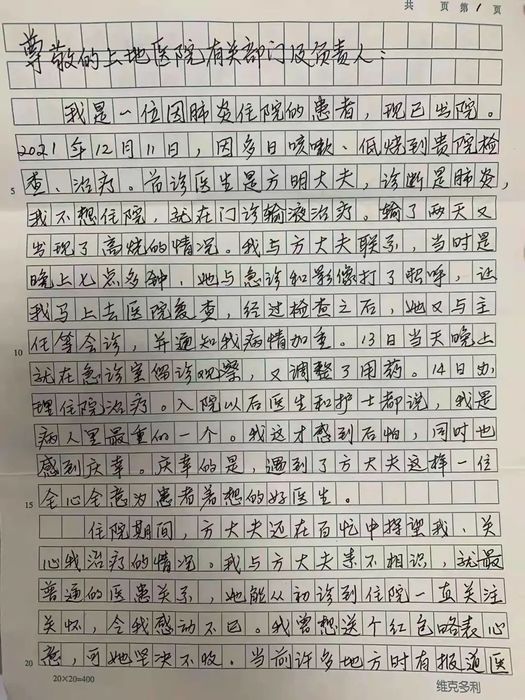 共 页 第 1 页
尊敬的上地医院有关部门及负责人：
我是一位因肺炎住院的患者，现已出院。
2021年12月11日，因多日咳嗽、低烧到贵院检
5 查、治疗。首诊医生是方明大夫，诊断是肺炎，
我不想住院，就在门诊输液治疗。输了两天又
发现了高烧的情况。我与方大夫联系，当时是
晚上七点多钟，她与急诊和影像打了招呼，让
我马上去医院复查，经过检查之后，她又与主
10 任等会诊，并通知我病情加重。13日当天晚上
就在急诊室留诊观察，又调整了用药。14日办
理住院治疗。入院以后医生和护士都说，我是
病人里最重的一个。我这才感到后怕，同时也
感到庆幸。庆幸的是，遇到了方大夫这样一位
15 全心全意为患者着想的好医生。
住院期间，方大夫还在百忙中探望我、关
心我治疗的情况。我与方大夫素不相识，就最
普通的医患关系，她能从初诊到住院一直关注
关怀，令我感动不已。我曾想送个红包略表心
20 意，可她坚决不收。当前许多地方时有报道医
20×20=400
维克多利